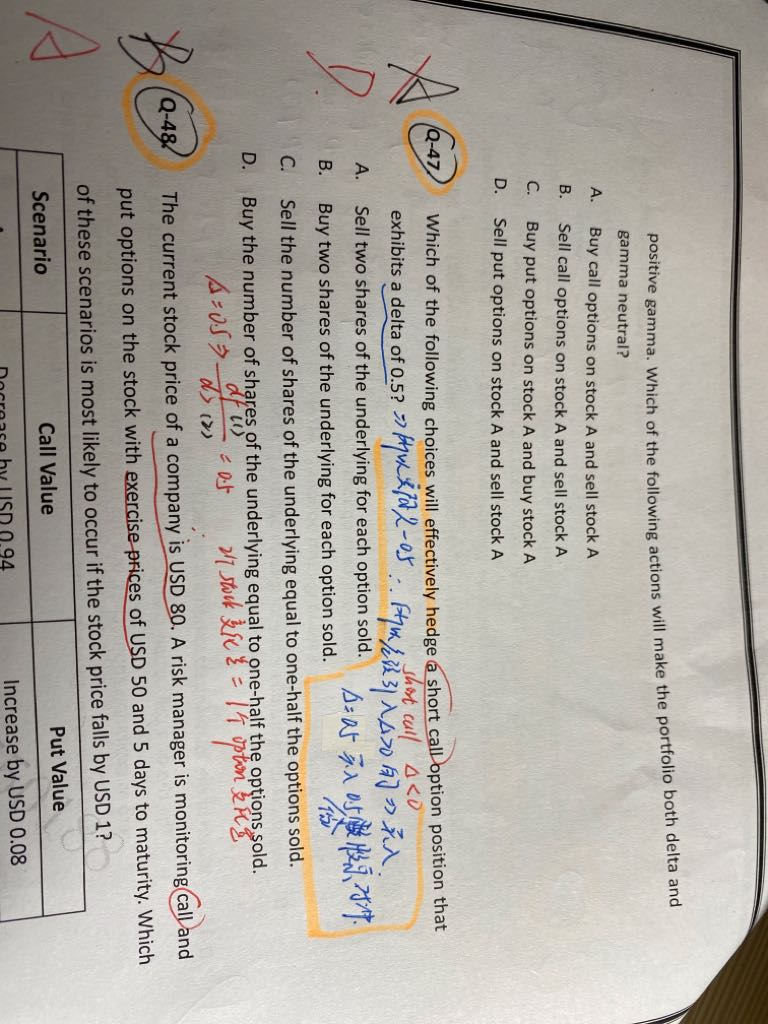 positive gamma. Which of the following actions will make the portfolio both delta and
gamma neutral?
A. Buy call options on stock A and sell stock A
B. Sell call options on stock A and sell stock A
C. Buy put options on stock A and buy stock A
D. Sell put options on stock A and sell stock A
A
D.
Q-47 Which of the following choices will effectively hedge a short call option position that
exhibits a delta of 0.5?
short call Δ<0
A. Sell two shares of the underlying for each option sold.
B. Buy two shares of the underlying for each option sold.
Δ=0.5 买入0.5份股票对冲.
C. Sell the number of shares of the underlying equal to one-half the options sold.
D. Buy the number of shares of the underlying equal to one-half the options sold.
Δ=0.5 ⇒ df(1) / ds(2) = 0.5 2个stock变化量 = 1个option变化量
B
A
Q-48 The current stock price of a company is USD 80. A risk manager is monitoring call and
put options on the stock with exercise prices of USD 50 and 5 days to maturity. Which
of these scenarios is most likely to occur if the stock price falls by USD 1?
Scenario Call Value Put Value
Decrease by USD 0.94 Increase by USD 0.08